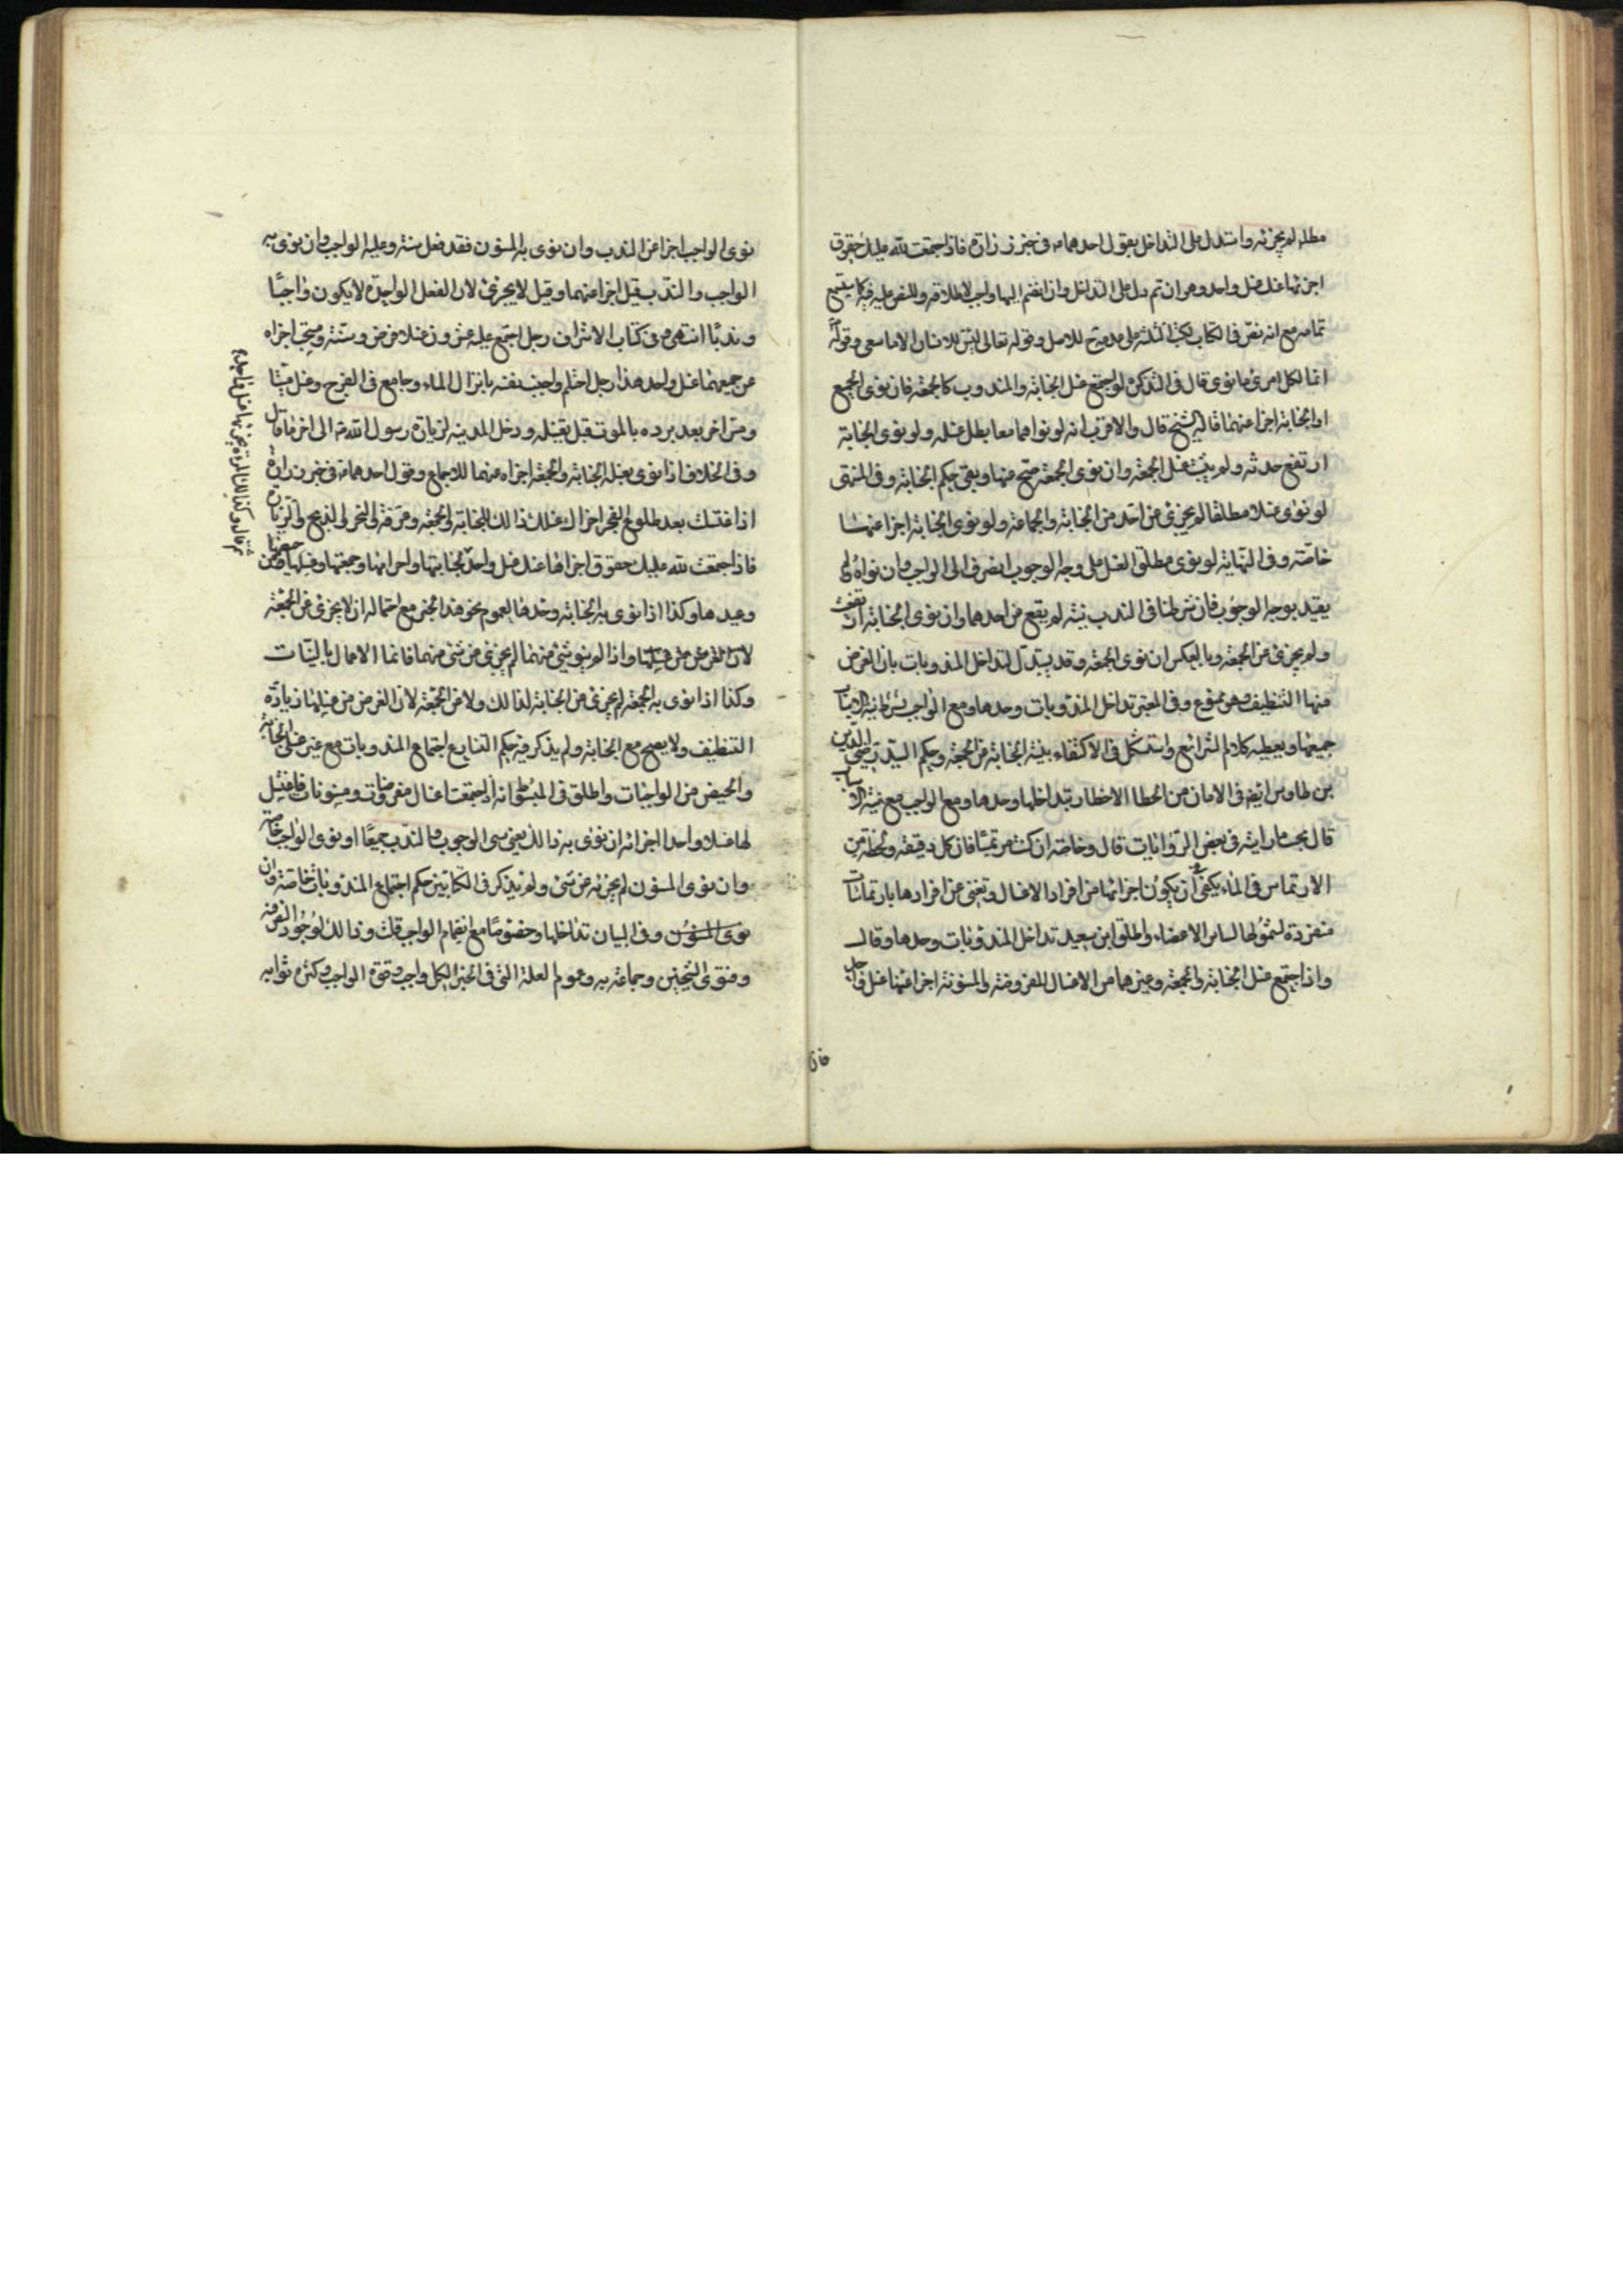 مطلقا لم يجزئه واستدل على التداخل بقول احدهما ع في خبر زرارة فاذا اجتمعت لله عليك حقوق
اجزئها عنك غسل واحد وهو ان تم دل على التداخل وان انضم اليها واجب لاطلاقه وللنص عليه فيه كما ستسمع
تمامه مع انه نص في الكتاب ككتبه الثلثة على عدمه للاصل وقوله تعالى ليس للانسان الا ما سعى وقوله
انما لكل امرئ ما نوى قال في التذكرة لو اجتمع غسل الجنابة والمندوب كالجمعة فان نوى الجميع
او الجنابة اجزا عنهما قاله الشيخ قال والاقرب انه لو نواهما معا بطل غسله ولو نوى الجنابة
ارتفع حدثه ولم يثبت غسل الجمعة وان نوى الجمعة صح منها وبقي حكم الجنابة وفي المنتهى
لو نوى غسلا مطلقا لم يجزئ عن احد من الجنابة والجماعة ولو نوى الجنابة اجزا عنها
خاصة وفي النهاية لو نوى مطلق الغسل على وجه الوجوب انصرف الى الواجب وان نواه ولم
يقيد بوجه الوجوب فان شرطنا في الندب نيته لم يقع عن احدهما وان نوى الجنابة ارتفعت
ولم يجزئ عن الجمعة وبالعكس ان نوى الجمعة وقد يستدل لتداخل المندوبات بان الغرض
منها التنظيف وهو ممنوع وفي المعتبر تداخل المندوبات وحدها ومع الواجب بشرط نية الاسباب
جميعها ويعطيه كلام الشرائع واستشكل في الاكتفاء بنية الجنابة عن الجمعة وحكم السيد رضي الدين
بن طاوس ايضا في الامان من اخطار الاخطار بتداخلها وحدها ومع الواجب مع نية الاسباب
قال بحسب ما رايته في بعض الروايات قال وخاصة ان كنت مرتمسا فان كل دقيقة ولحظة من
الارتماس في الماء يكفي في ان يكون اجزائها عن افراد الاغسال وتغني عن افرادها بارتماسات
متفردة لشمولها لساير الاعضاء واطلق ابن سعيد تداخل المندوبات وحدها وقال
واذا اجتمع غسل الجنابة والجمعة وغيرهما من الاغسال المفروضة والمسنونة اجزا عنها غسل واحد
فان
نوى الواجب اجزا عن الندب وان نوى به المسنون فقد فعل سنة وعليه الواجب وان نوى به
الواجب والندب قيل اجزا عنهما وقيل لا يجزئ لان الفعل الواحد لا يكون واجبًا
وندبًا انتهى وفي كتاب الاشراف رجل اجتمع عليه عشرون غسلا فرض وسنة ومستحب اجزاه
عن جميعها غسل واحد هذا رجل احتلم واجنب نفسه بانزال الماء وجامع في الفرج وغسل ميتا
ومس اخر بعد برده بالموت قبل تغسيله ودخل المدينة لزيارة رسول الله ص الى اخر ما قال
وفي الخلاف اذا نوى بغسله الجنابة والجمعة اجزاه عنهما للاجماع وقول احدهما ع في خبر زرارة
اذا اغتسلت بعد طلوع الفجر اجزاك غسلك ذالك للجنابة والجمعة وعرفة والنحر والذبح والزيارة
فاذا اجتمعت لله عليك حقوق اجزاها عنك غسل واحد لجنابتها واحرامها وجمعتها وغسلها من حيضها
وعيدها وكذا اذا نوى به الجنابة وحدها لعموم نحو هذا الخبر مع احتماله ان لا يجزئ عن الجمعة
لان الغرض من غسلها واذا لم ينو شئ منهما لم يجزئ عن شئ منهما فانما الاعمال بالنيات
وكذا اذا نوى به الجمعة لم يجزئ عن الجنابة لذالك ولا عن الجمعة لان الغرض من غسلها زيادة
التنظيف ولا يصح مع الجنابة ولم يذكر فيه حكم التتابع اجتماع المندوبات مع غير غسل الجنابة
والحيض من الواجبات واطلق في المبسوط انه اذا اجتمعت اغسال مفروضات ومسنونات فاغتسل
لها غسلا واحدا اجزائه ان نوى به ذالك يعني سوى الوجوب والندب جميعًا او نوى الواجب خاصة
وان نوى المسنون لم يجزئه عن شئ ولم يذكر في الكتابين حكم اجتماع المندوبات خاصة وان
نوى المسنون وفي البيان تداخلها وخصوصًا مع انضمام الواجب قلت وذالك لوجود الفرض منه
وفتوى الشيخين وجماعة به وعموم العلة التي في الخبر لكل واجب وقوة الواجب وكثرة ثوابه